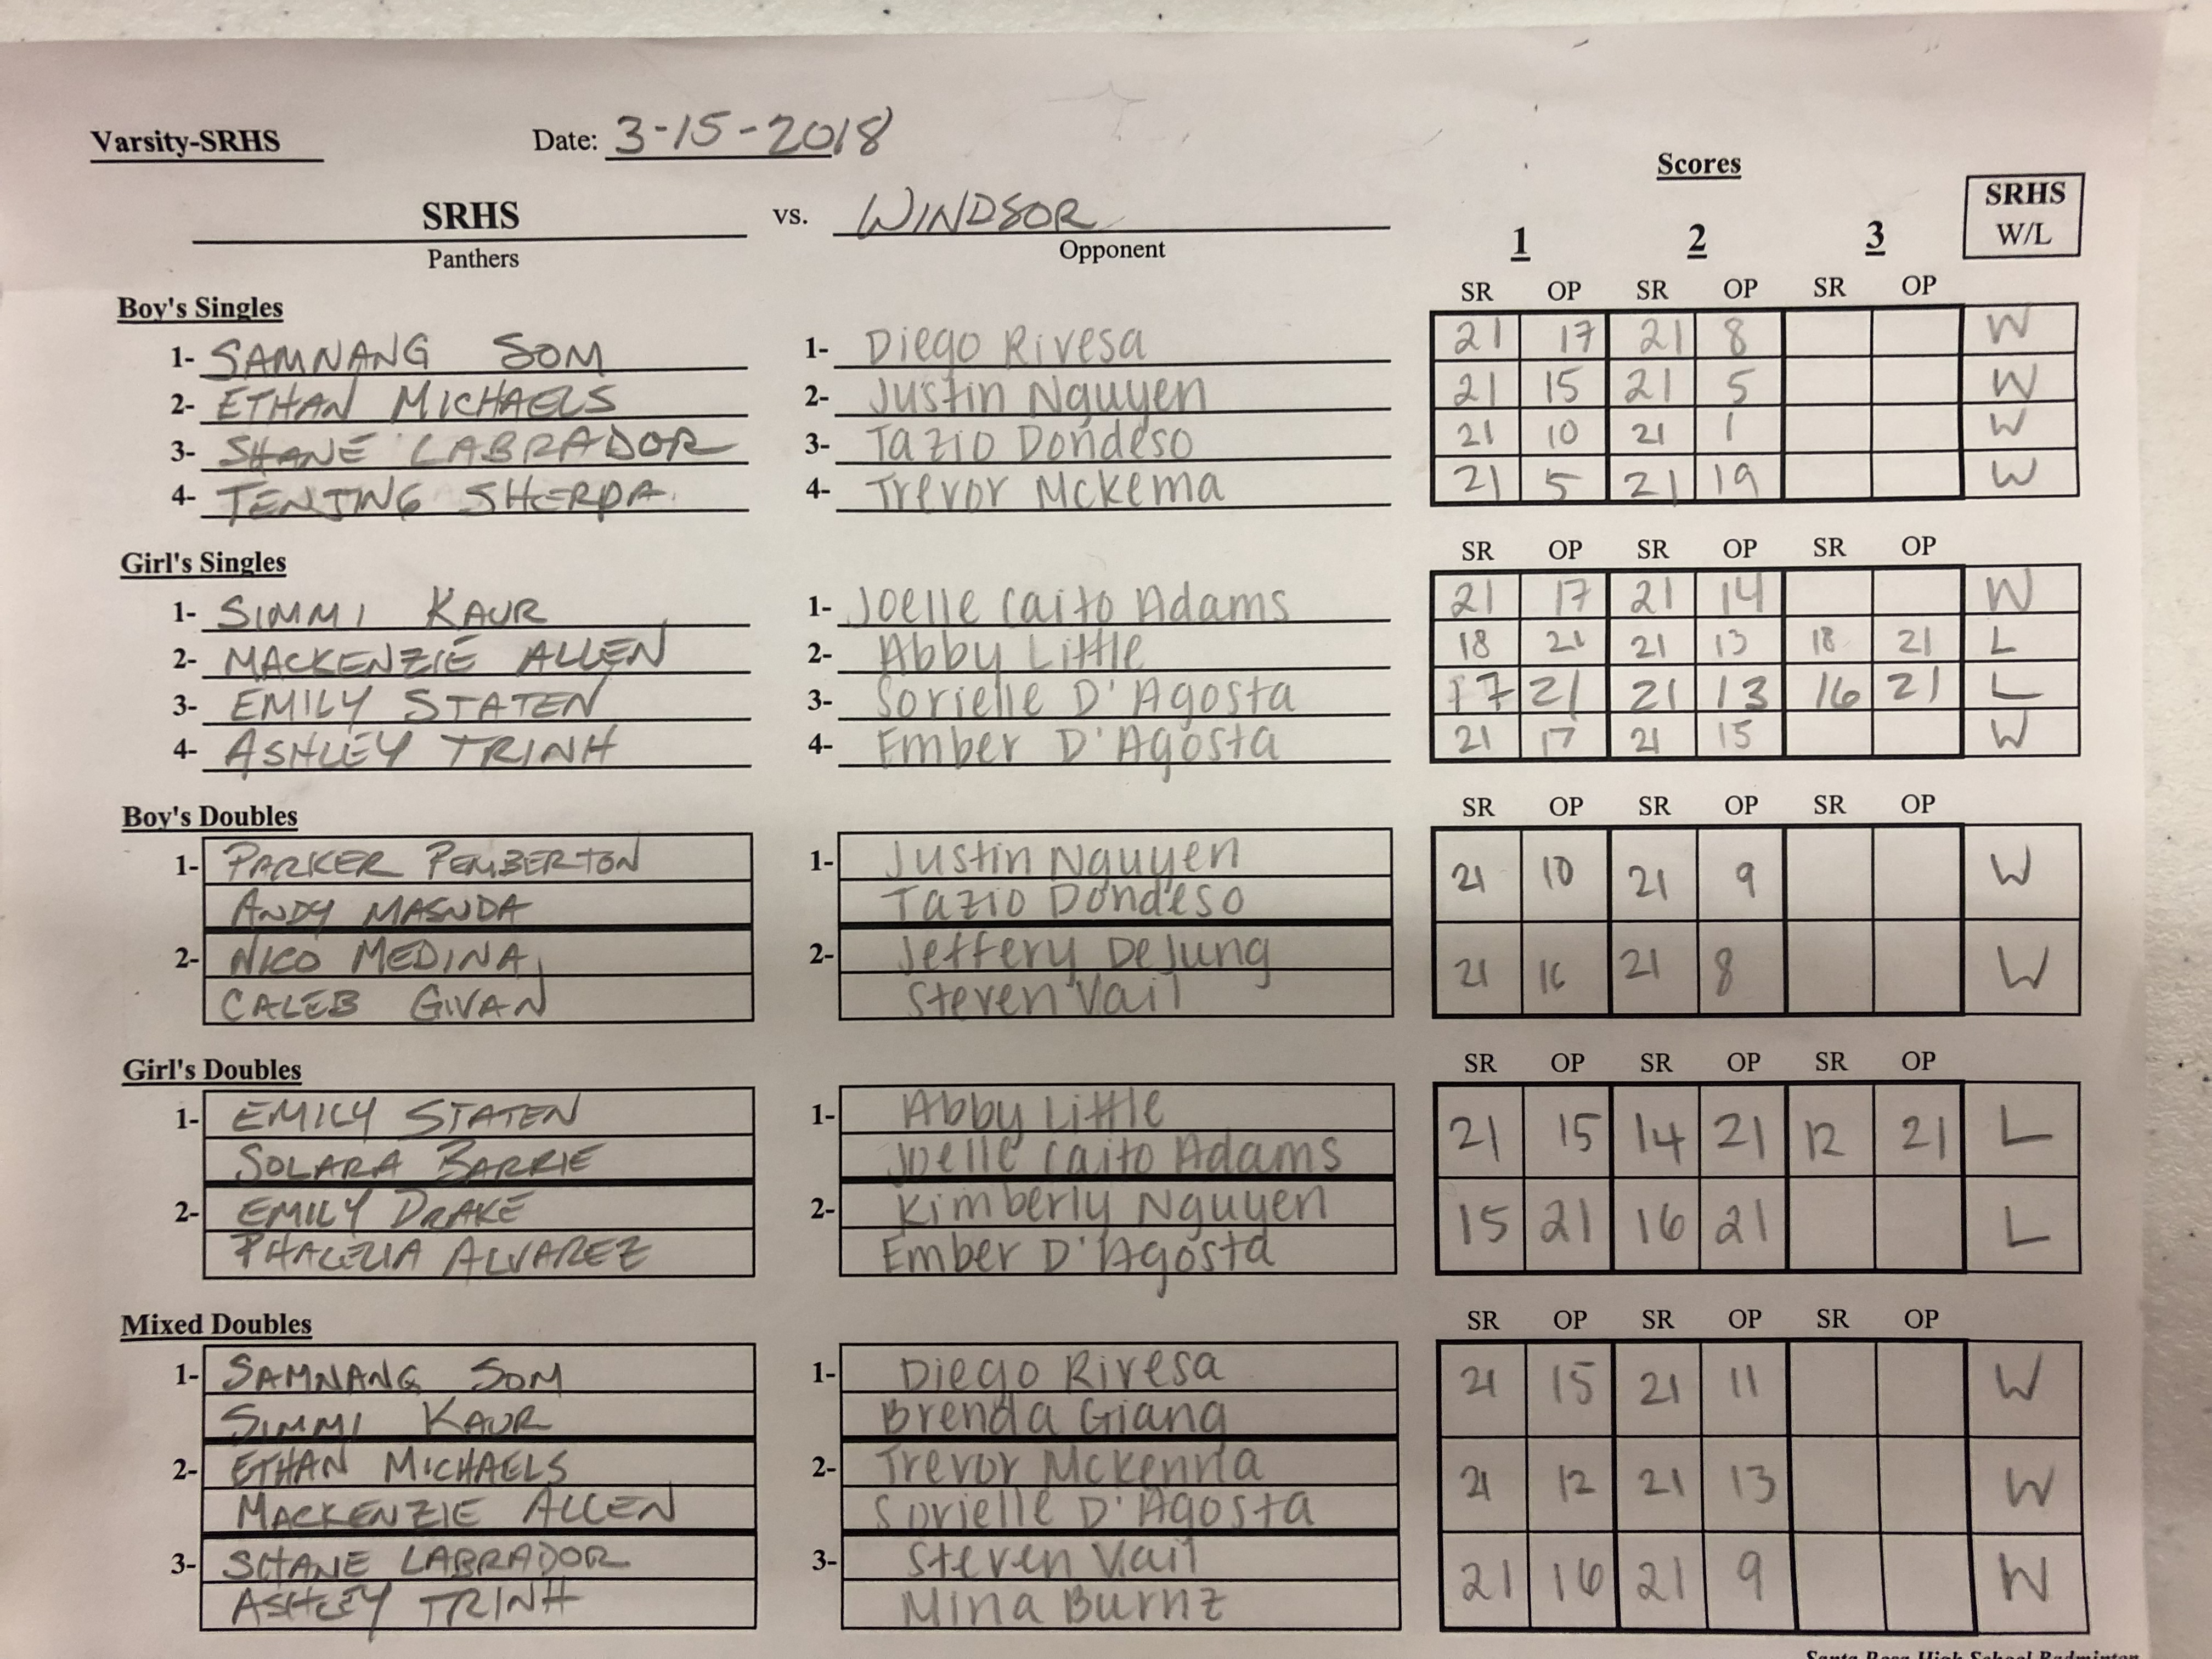 Varsity-SRHS Date: 3-15-2018
Scores
SRHS vs. WINDSOR
Panthers Opponent
1 2 3 SRHS W/L
Boy's Singles SR OP SR OP SR OP
1- SAMNANG SOM 1- Diego Rivesa 21 17 21 8 W
2- ETHAN MICHAELS 2- Justin Nguyen 21 15 21 5 W
3- SHANE LABRADOR 3- Tazio Dondeso 21 10 21 1 W
4- TENJING SHERPA 4- Trevor Mckema 21 5 21 19 W
Girl's Singles SR OP SR OP SR OP
1- SIMMI KAUR 1- Joelle Caito Adams 21 17 21 14 W
2- MACKENZIE ALLEN 2- Abby Little 18 21 21 13 18 21 L
3- EMILY STATEN 3- Sorielle D'Agosta 17 21 21 13 16 21 L
4- ASHLEY TRINH 4- Ember D'Agosta 21 17 21 15 W
Boy's Doubles SR OP SR OP SR OP
1- PARKER PEMBERTON 1- Justin Nguyen 21 10 21 9 W
ANDY MASUDA Tazio Dondeso
2- NICO MEDINA 2- Jeffery DeJung 21 16 21 8 W
CALEB GIVAN Steven Vail
Girl's Doubles SR OP SR OP SR OP
1- EMILY STATEN 1- Abby Little 21 15 14 21 12 21 L
SOLARA BARRIE Joelle Caito Adams
2- EMILY DRAKE 2- Kimberly Nguyen 15 21 16 21 L
ALVAREZ Ember D'Agosta
Mixed Doubles SR OP SR OP SR OP
1- SAMNANG SOM 1- Diego Rivesa 21 15 21 11 W
SIMMI KAUR Brenda Giang
2- ETHAN MICHAELS 2- Trevor Mckenna 21 12 21 13 W
MACKENZIE ALLEN Sorielle D'Agosta
3- SHANE LABRADOR 3- Steven Vail 21 16 21 9 W
ASHLEY TRINH Mina Burnz
Santa Rosa High School Badminton